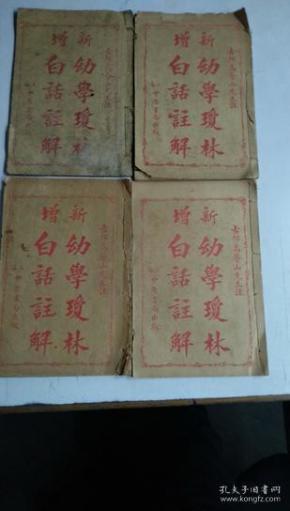 新增
幼學瓊林
白話註解
新增
幼學瓊林
白話註解
新增
幼學瓊林
白話註解
新增
幼學瓊林
白話註解
孔夫子旧书网
www.kongfz.com